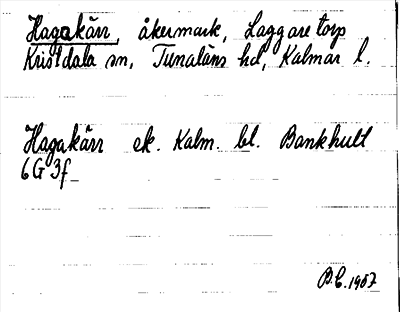 Hagakärr, åkermark, Laggaretorp
Kristdala sn, Tunaläns hd, Kalmar l.
Hagakärr ek. Kalm. bl. Bankhult
6G 3f
B.E. 1957